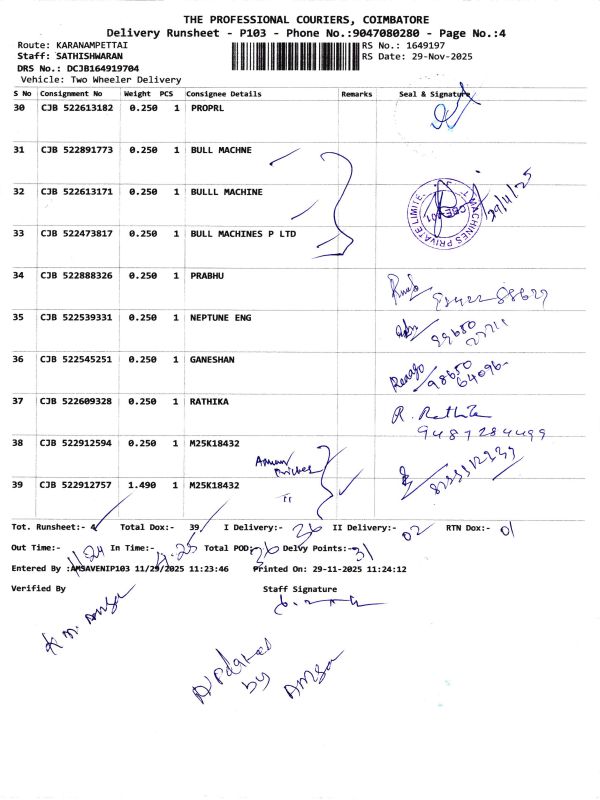 THE PROFESSIONAL COURIERS, COIMBATORE
Delivery Runsheet - P103 - Phone No.:9047080280 - Page No.:4
Route: KARANAMPETTAI RS No.: 1649197
Staff: SATHISHWARAN RS Date: 29-Nov-2025
DRS No.: DCJB164919704
Vehicle: Two Wheeler Delivery
S No Consignment No Weight PCS Consignee Details Remarks Seal & Signature
30 CJB 522613182 0.250 1 PROPRL
31 CJB 522891773 0.250 1 BULL MACHNE
32 CJB 522613171 0.250 1 BULLL MACHINE
MACHINES PRIVATE LIMITE 29/11/25
33 CJB 522473817 0.250 1 BULL MACHINES P LTD
34 CJB 522888326 0.250 1 PRABHU
35 CJB 522539331 0.250 1 NEPTUNE ENG
36 CJB 522545251 0.250 1 GANESHAN
98650
64096
37 CJB 522609328 0.250 1 RATHIKA R. Rathika
9487284499
38 CJB 522912594 0.250 1 M25K18432
39 CJB 522912757 1.490 1 M25K18432
Tot. Runsheet:- 4 Total Dox:- 39 I Delivery:- 36 II Delivery:- 02 RTN Dox:- 01
Out Time:- 11.24 In Time:- Total POD:- 36 Delvy Points:- 31
Entered By :AMSAVENIP103 11/29/2025 11:23:46 Printed On: 29-11-2025 11:24:12
Verified By Staff Signature
Updated
by
Amsa